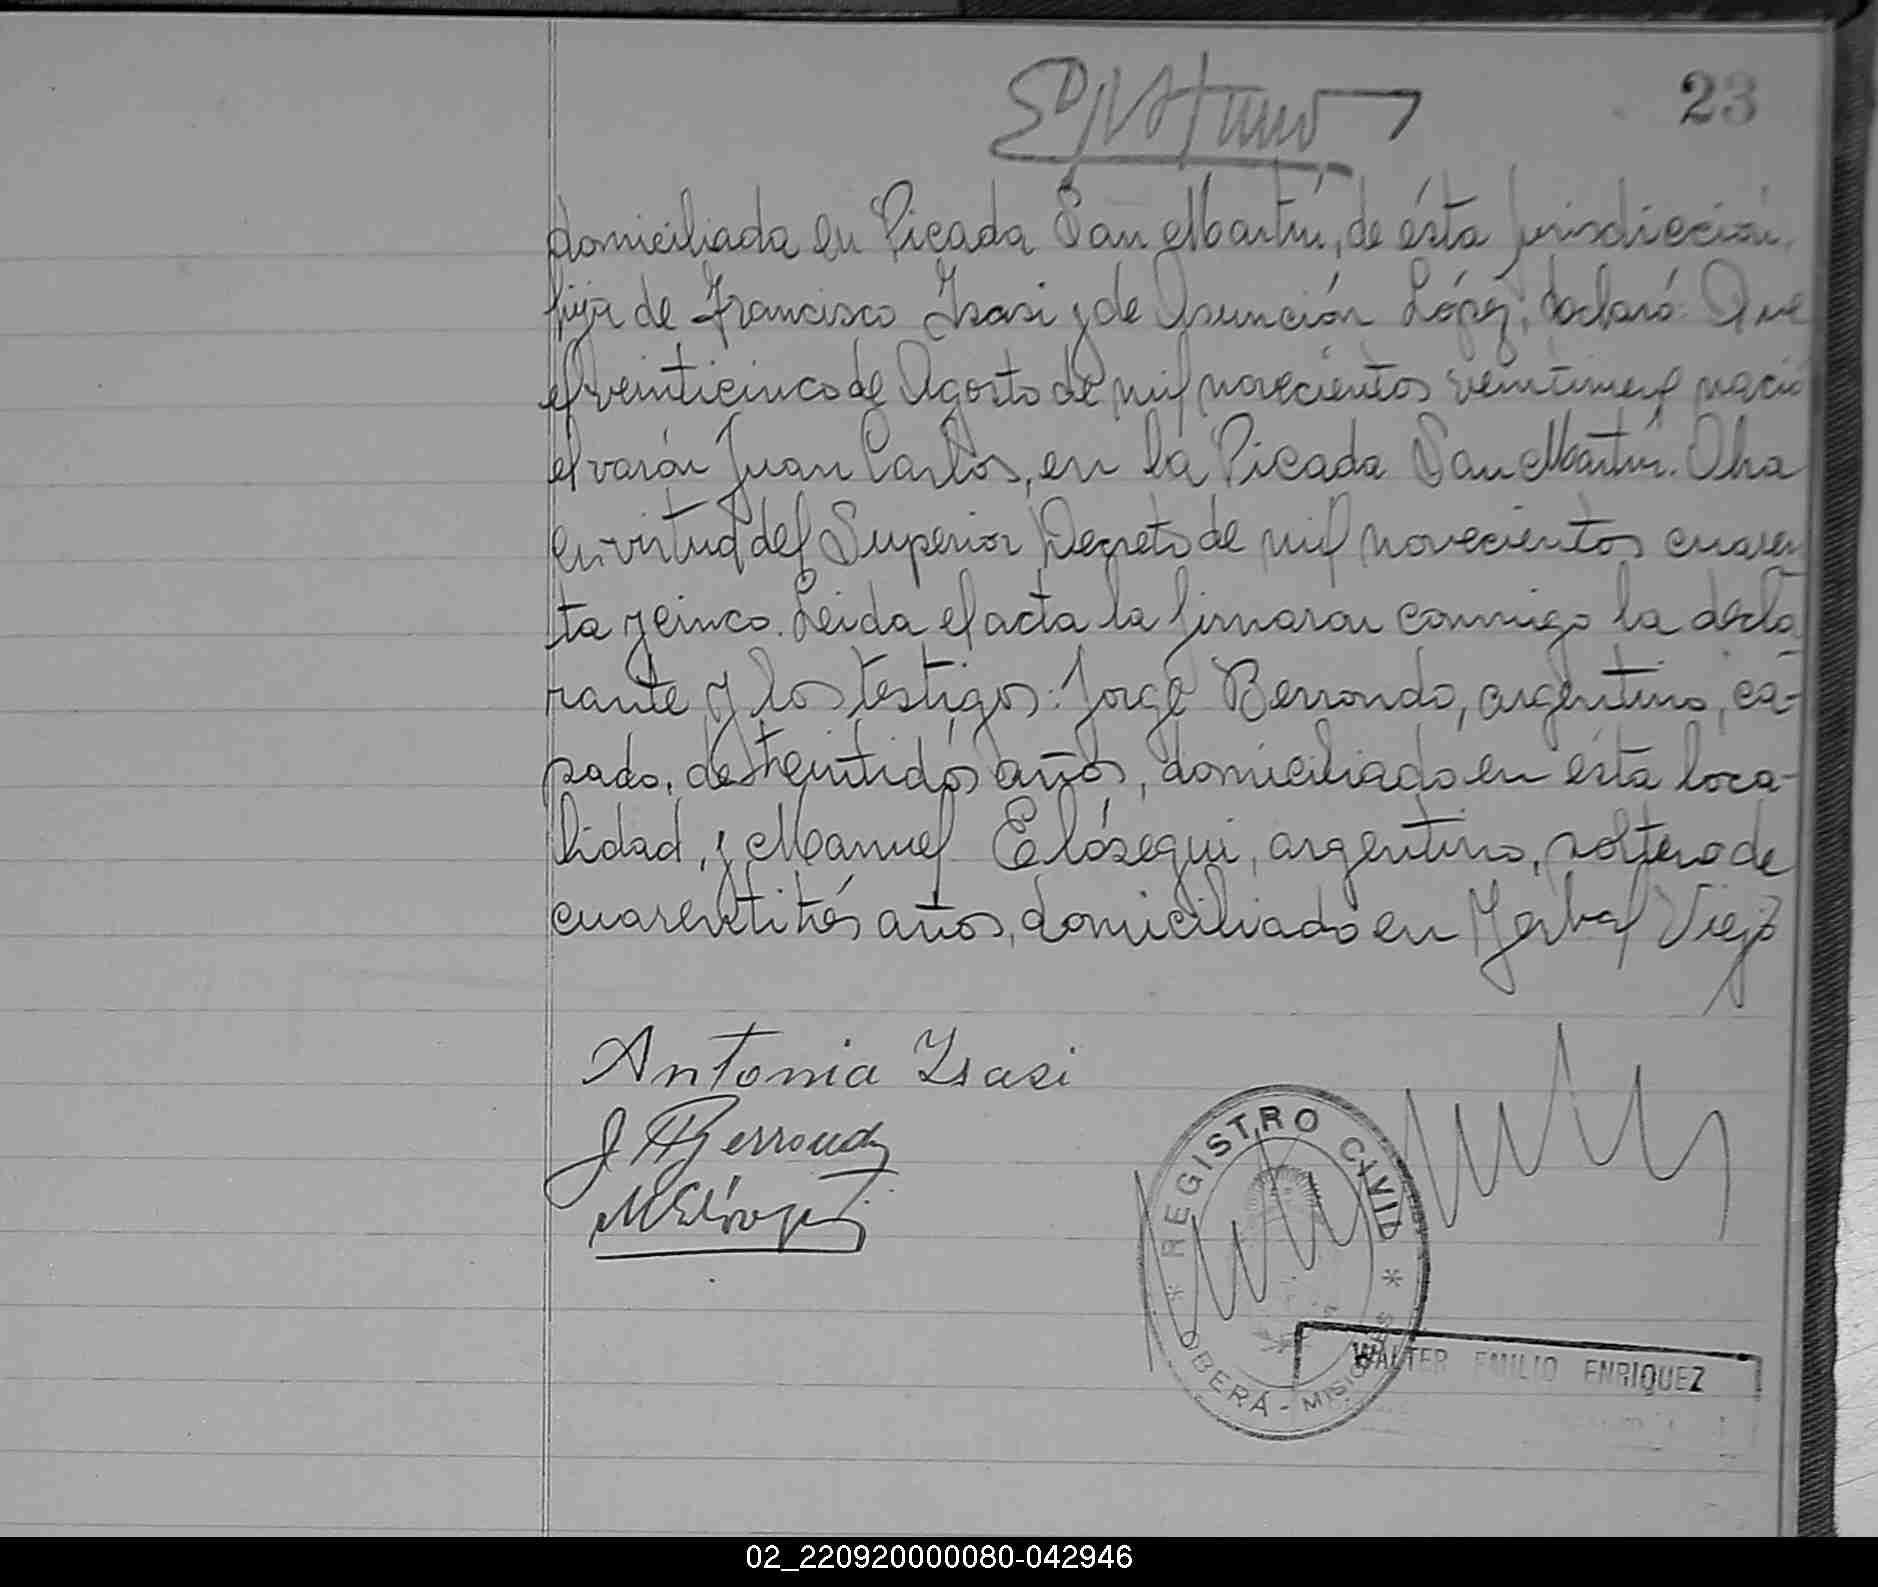 23
domiciliada en Picada San Martín, de ésta jurisdicción,
hija de Francisco Isasi y de Asunción López, declaró: Que
el veinticinco de Agosto de mil novecientos nació
el varón Juan Carlos, en la Picada San Martín. Obra
en virtud del Superior Decreto de mil novecientos cuaren
ta y cinco. Leida el acta la firmaron conmigo la decla
rante y los testigos: Jorge Berrondo, argentino, ca-
sado, de años, domiciliado en ésta loca-
lidad, y Manuel Elósegui, argentino, soltero de
cuarentitrés años, domiciliado en Yerbal Viejo
Antonia Isasi
J Berrondo
M Elósegui
* REGISTRO CIVIL *
OBERÁ - MISIONES
WALTER EMILIO ENRIQUEZ
02_220920000080-042946